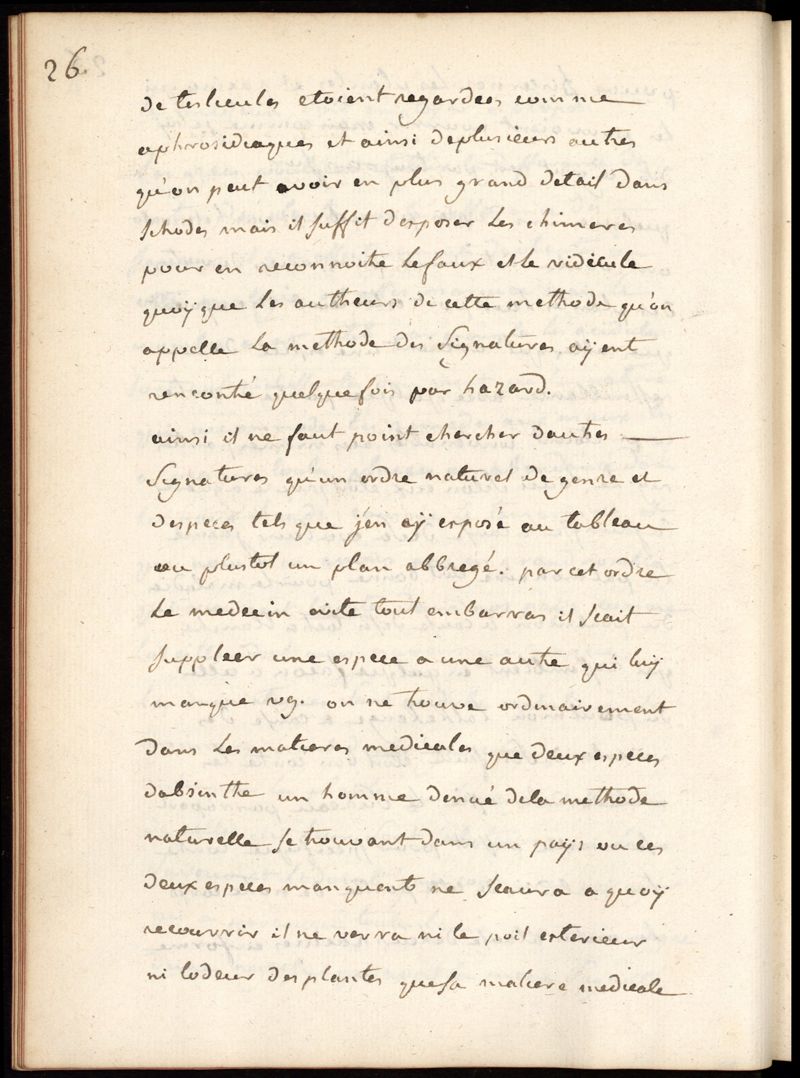 26
de testicules etoient regardees comme
aphrosidiaques et ainsi deplusieurs autres
qu'on peut avoir en plus grand detail dans
mais il suffit d'exposer Les chimeres
pour en reconnoitre Lefaux et le ridicule
quoÿque Les autheurs de cette methode qu'on
appelle La methode des Signatures aÿent
rencontré quelquefois par hazard.
ainsi il ne faut point chercher dautres
Signatures qu'un ordre naturel de genre et
despeces tels que j'en aÿ exposé au tableau
ou plustot un plan abbregé. par cet ordre
Le medecin evite tout embarras il scait
suppleer une espece a une autre qui luÿ
manque vg. on ne trouve ordinairement
Dans Les matieres medicales que deux especes
dabsinthe un homme denué dela methode
naturelle se trouvant dans un païs ou ces
Deux especes manquent ne scaura a quoÿ
recourrir il ne verra ni le poil exterieur
ni lodeur des plantes que sa matiere medicale